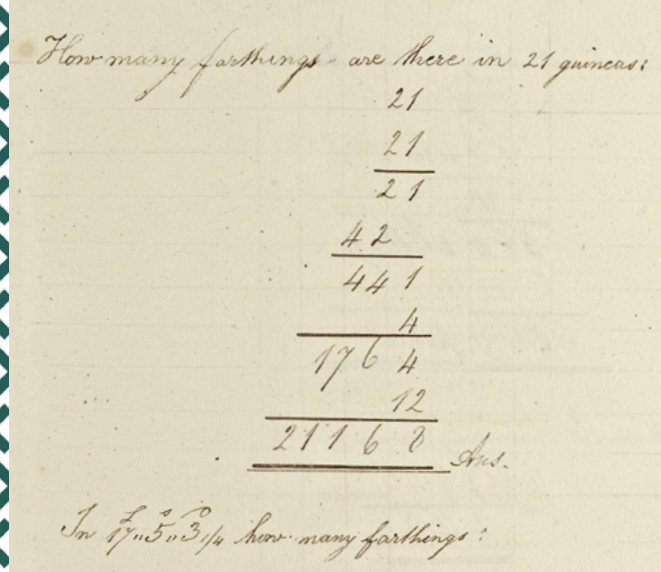 How many farthings are there in 21 guineas:
21
21
21
42
441
4
1764
12
21168 Ans.
£ s D
In 17,,5,,3 1/4 how many farthings: